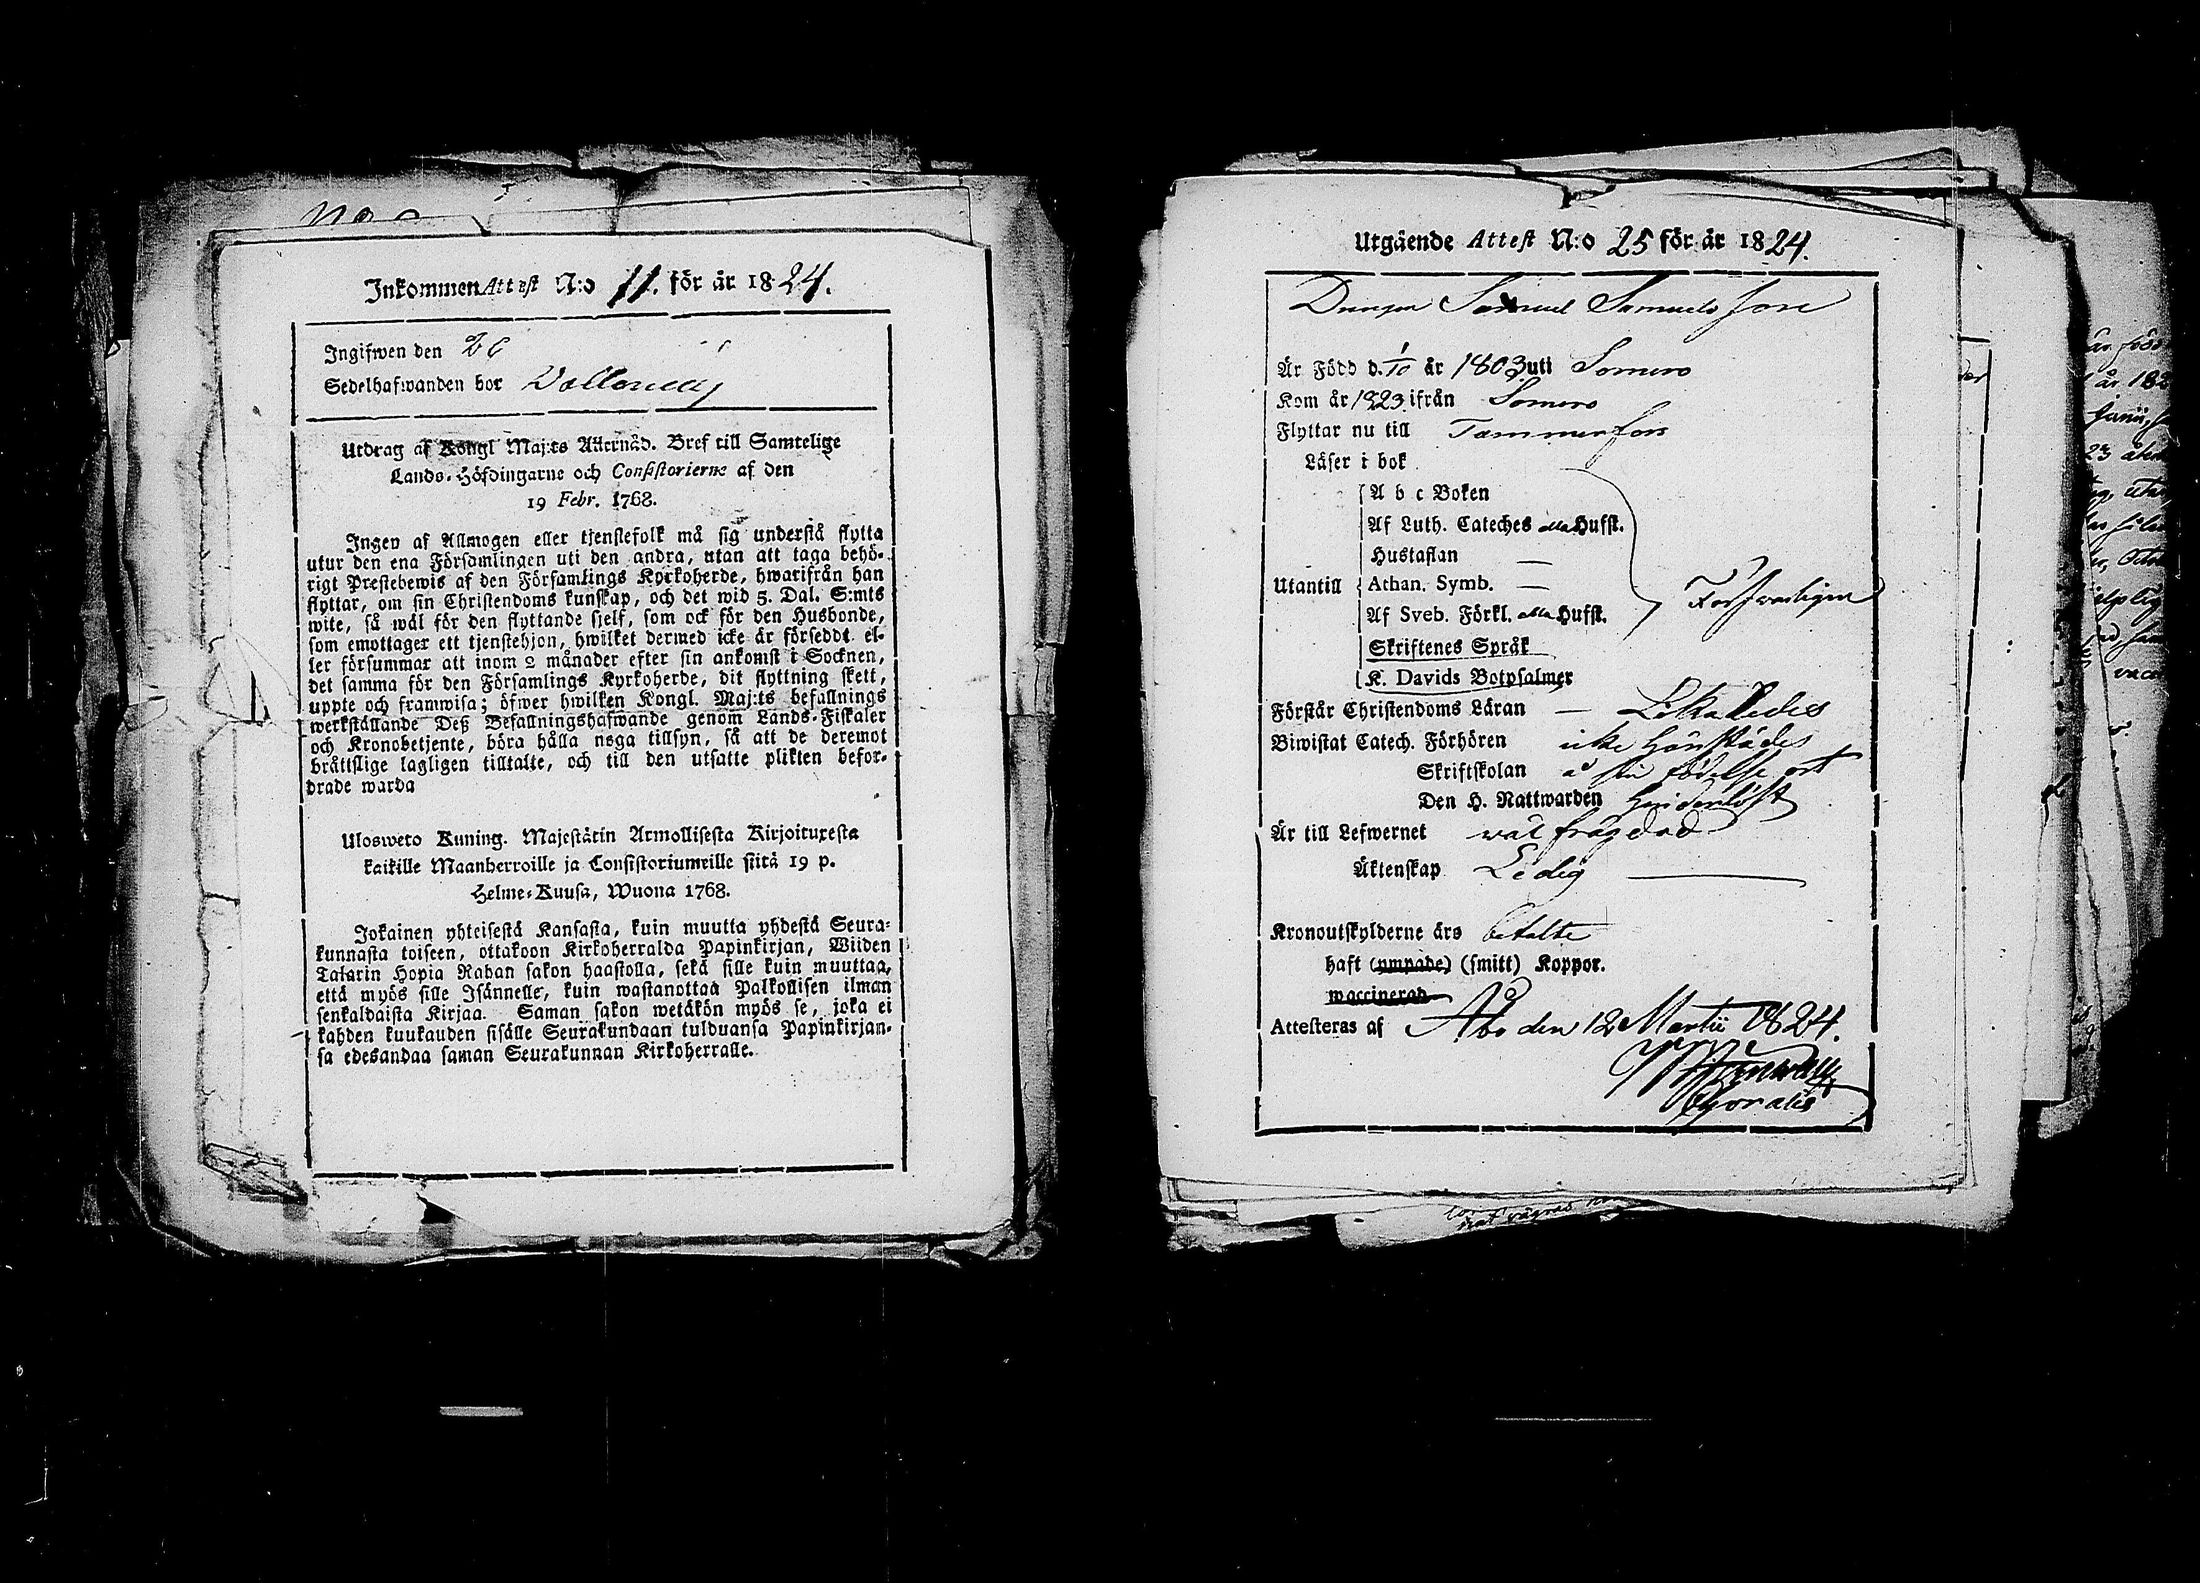 Inkommen Attest N:o 11. för år 1824.
Ingifwen den
Sedelhafwanden bor
Utdrag af Kongl Maj:ts Allernåd. Bref till Samtelige
Lands-Höfdingarne och Consistorierne af den
19 Febr. 1768.
Ingen af Allmogen eller tjenstefolk må sig understå flytta
utur den ena Församlingen uti den andra, utan att taga behö-
rigt Prestebewis af den Församlings Kyrkoherde, hwarifrån han
flyttar, om sin Christendoms kunskap, och det wid 5. Dal. S:mts
wite, så wäl för den flyttande sjelf, som ock för den Husbonde,
som emottager ett tjenstehjon, hwilket dermed icke är försedt el-
ler försummar att inom 2 månader efter sin ankomst i Socknen,
det samma för den Församlings Kyrkoherde, dit flyttning skett,
uppte och framwisa; öfwer hwilken Kongl. Maj:ts befallnings
werkställande Deß Befallningshafwande genom Lands-Fiskaler
och Kronobetjente, böra hålla noga tillsyn, så att de deremot
bråttslige lagligen tilltalte, och till den utsatte plikten befor-
drade warda
Ulosweto Kuning. Majestätin Armollisesta Kirjoituxesta
kaikille Maanherroille ja Consistoriumeille siitä 19 p.
Helme-Kuusa, Wuona 1768.
Jokainen yhteisestä Kansasta, kuin muutta yhdestä Seura-
kunnasta toiseen, ottakoon Kirkoherralda Papinkirjan, Wiiden
Talarin Hopia Rahan sakon haastolla, sekä sille kuin muuttaa,
että myös sille Isännelle, kuin wastanottaa Palkollisen ilman
senkaldaista Kirjaa. Saman sakon wetäkön myös se, joka ei
kahden kuukauden sisälle Seurakundaan tulduansa Papinkirjan-
sa edesandaa saman Seurakunnan Kirkoherralle.
Utgående Attest N:o 25 för år 1824.
Drängen Samuel Samuelsson
Är Född d. 1/10 år 1803 uti Somero
Kom år 1823 ifrån Somero
Flyttar nu till Tammerfors
Läser i bok
A b c Boken
Af Luth. Cateches alla Hufst.
Hustaflan —
Utantill Athan. Symb. —
Af Sveb. Förkl. alla Hufst. Försvarligen
Skriftenes Språk
K. Davids Botpsalmer
Förstår Christendoms Läran — Likaledes
Biwistat Catech. Förhören icke härstädes
Skriftskolan å sin födelse ort
Den H. Nattwarden
Är till Lefwernet wäl frägdad
Äktenskap Ledig
Kronoutskylderne äro betalte
haft (ympade) (smitt) Koppor.
waccinerad
Attesteras af Åbo den 12 Martii 1824.